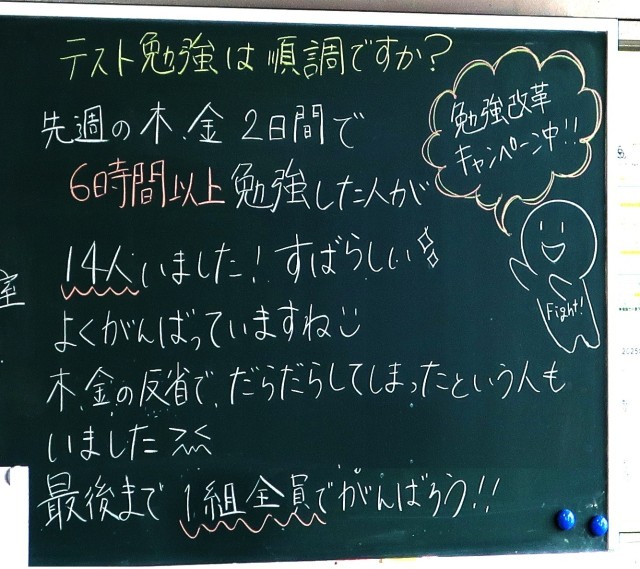 テスト勉強は順調ですか?
先週の木、金 2日間で
6時間以上勉強した人が
14人いました! すばらしい
よくがんばっていますね
木、金の反省で、だらだらしてしまったという人も
いました
最後まで 1組全員でがんばろう!!
勉強改革
キャンペーン中!!
Fight!
室